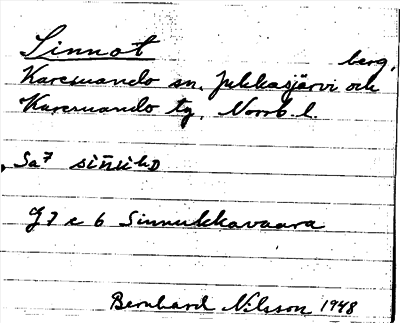 Sinnot berg,
Karesuando sn, Jukkasjärvi och
Karesuando tg, Norrb. l.
Sa7
J7 c 6 Sinnukkavaara
Bernhard Nilsson 1948